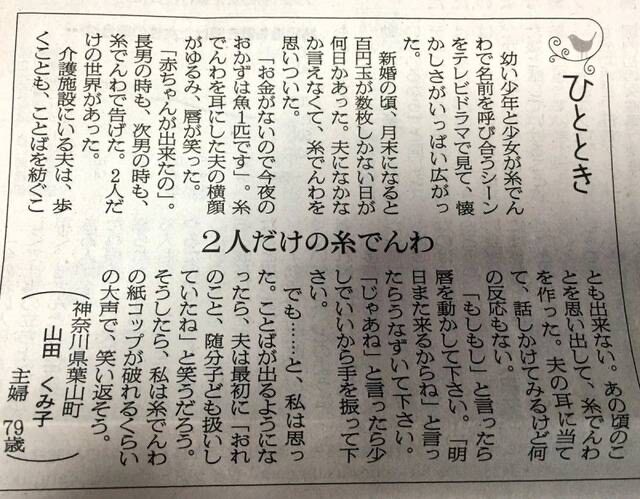 ひととき
２人だけの糸でんわ
幼い少年と少女が糸でん
わで名前を呼び合うシーン
をテレビドラマで見て、懐
かしさがいっぱい広がっ
た。
新婚の頃、月末になると
百円玉が数枚しかない日が
何日かあった。夫になかな
か言えなくて、糸でんわを
思いついた。
「お金がないので今夜の
おかずは魚１匹です」。糸
でんわを耳にした夫の横顔
がゆるみ、唇が笑った。
「赤ちゃんが出来たの」。
長男の時も、次男の時も、
糸でんわで告げた。２人だ
けの世界があった。
介護施設にいる夫は、歩
くことも、ことばを紡ぐこ
とも出来ない。あの頃のこ
とを思い出して、糸でんわ
を作った。夫の耳に当て
て、話しかけてみるけど何
の反応もない。
「もしもし」と言ったら
唇を動かして下さい。「明
日また来るからね」と言っ
たらうなずいて下さい。
「じゃあね」と言ったら少
しでいいから手を振って下
さい。
でも……と、私は思っ
た。ことばが出るようにな
ったら、夫は最初に「おれ
のこと、随分子ども扱いし
ていたね」と笑うだろう。
そうしたら、私は糸でんわ
の紙コップが破れるくらい
の大声で、笑い返そう。
（神奈川県葉山町
山田 くみ子
主婦 79歳）